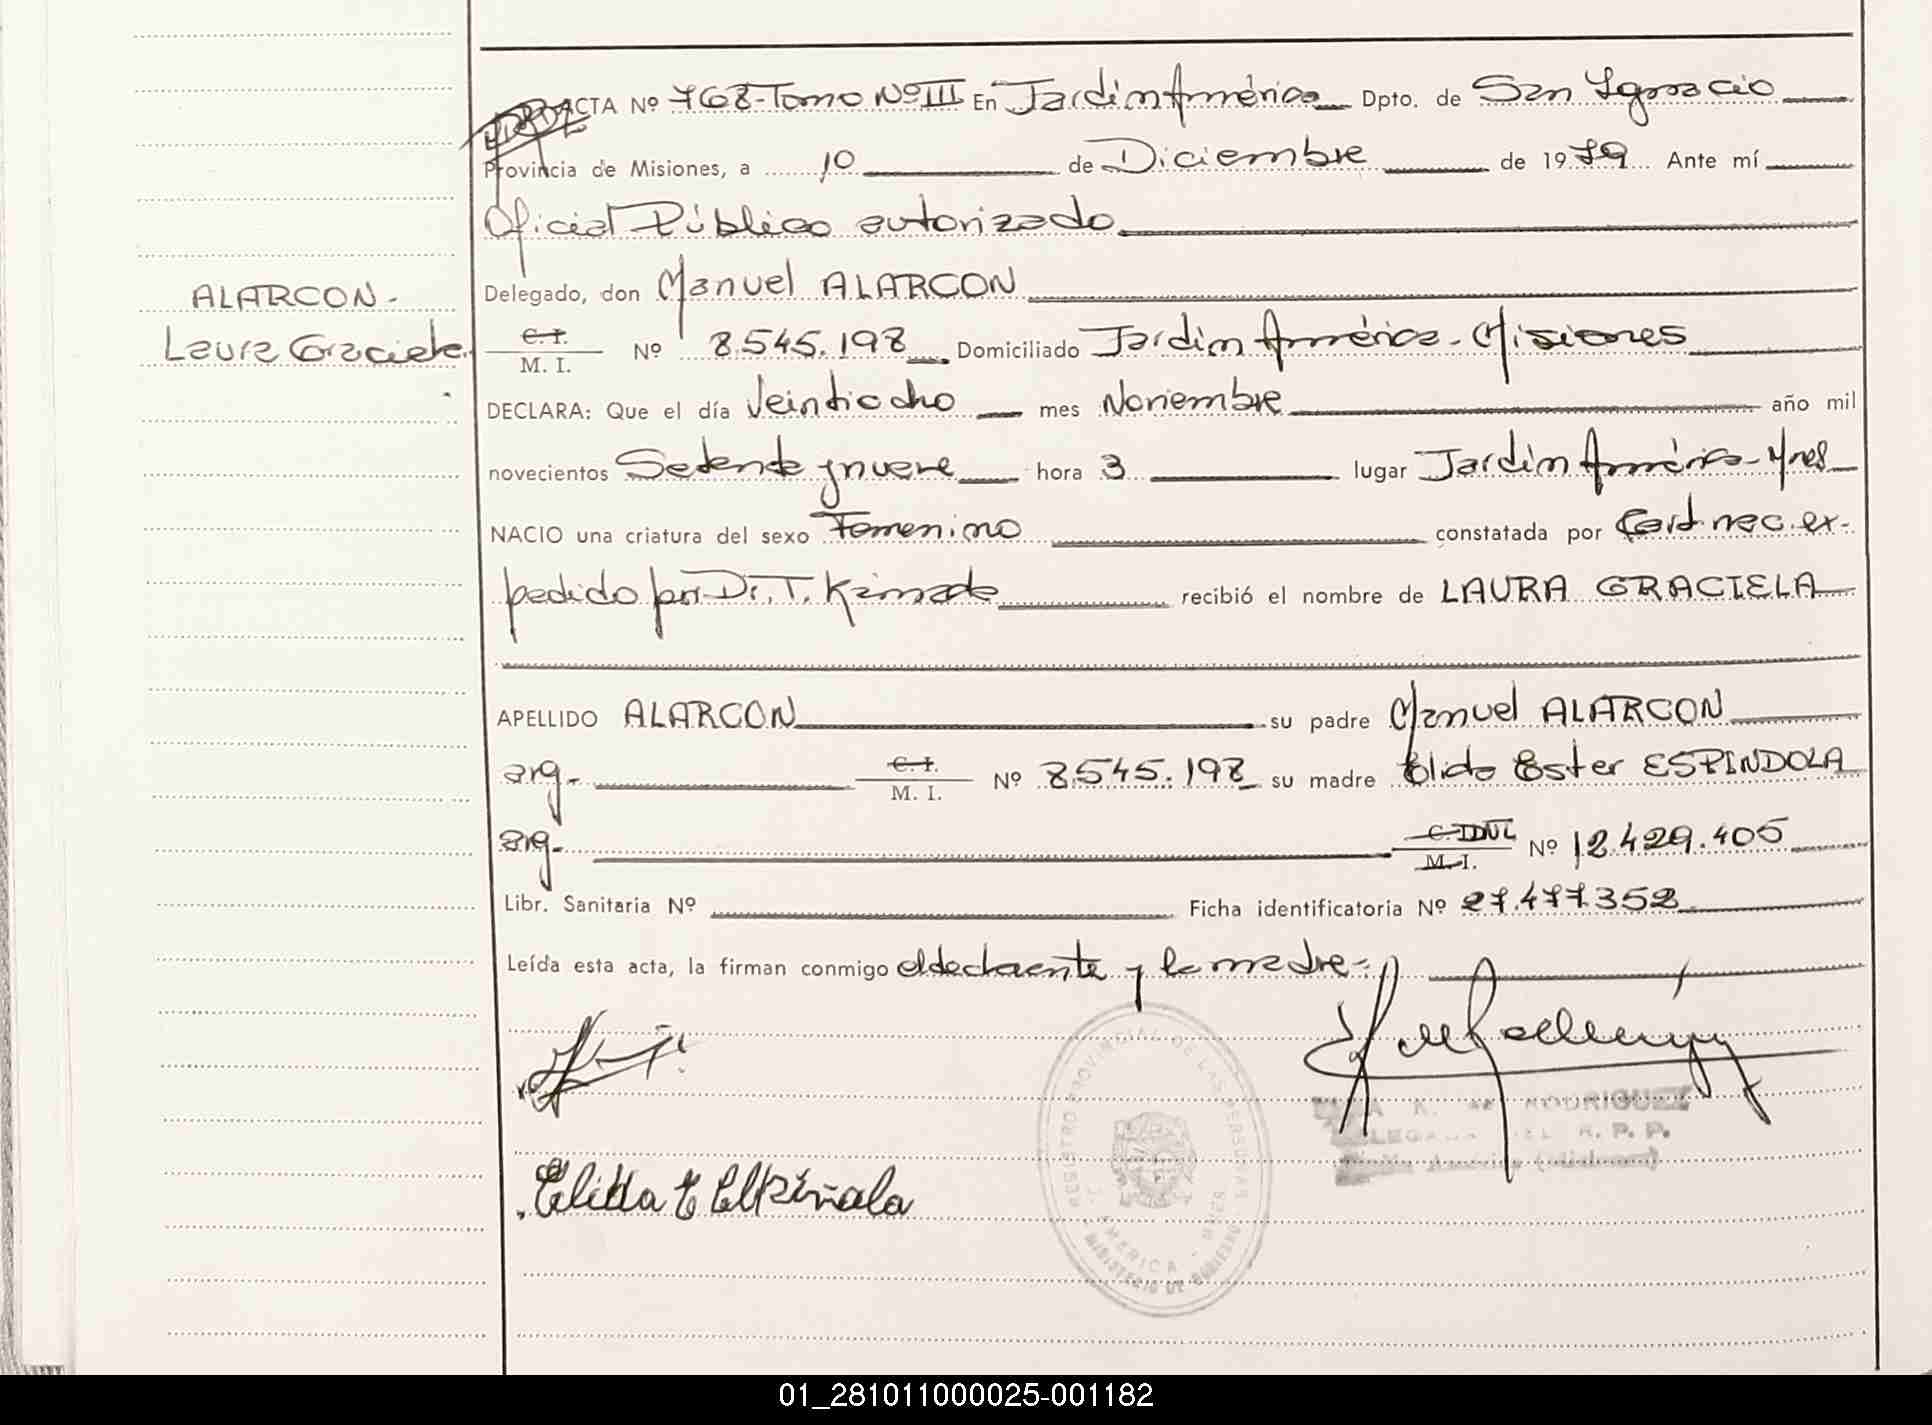 ACTA Nº 768-Tomo NºIII En Jardín América Dpto. de San Ignacio
Provincia de Misiones, a 10 de Diciembre de 1979 Ante mí
Oficial Público autorizado
ALARCON.
Delegado, don Manuel ALARCON
Laura Graciela.
C. I.
M. I. Nº 8.545.198 Domiciliado Jardín América - Misiones
DECLARA: Que el día Veintiocho mes Noviembre año mil
novecientos Setenta y nueve hora 3 lugar Jardín América - Mnes
NACIO una criatura del sexo Femenino constatada por Cert. nac. ex-
pedido por Dr. T. recibió el nombre de LAURA GRACIELA
APELLIDO ALARCON su padre Manuel ALARCON
arg. C. I.
M. I. Nº 8.545.198 su madre Elida Ester ESPINDOLA
arg. Nº 12.429.405
M. I.
Libr. Sanitaria Nº Ficha identificatoria Nº 27.477.352
Leída esta acta, la firman conmigo el declarante y la madre-
REGISTRO PROVINCIAL DE LAS PERSONAS
J. AMERICA - MNES
MINISTERIO DE GOBIERNO
DE RODRIGUEZ
R. P. P.
América (Misiones)
Elida E
01_281011000025-001182